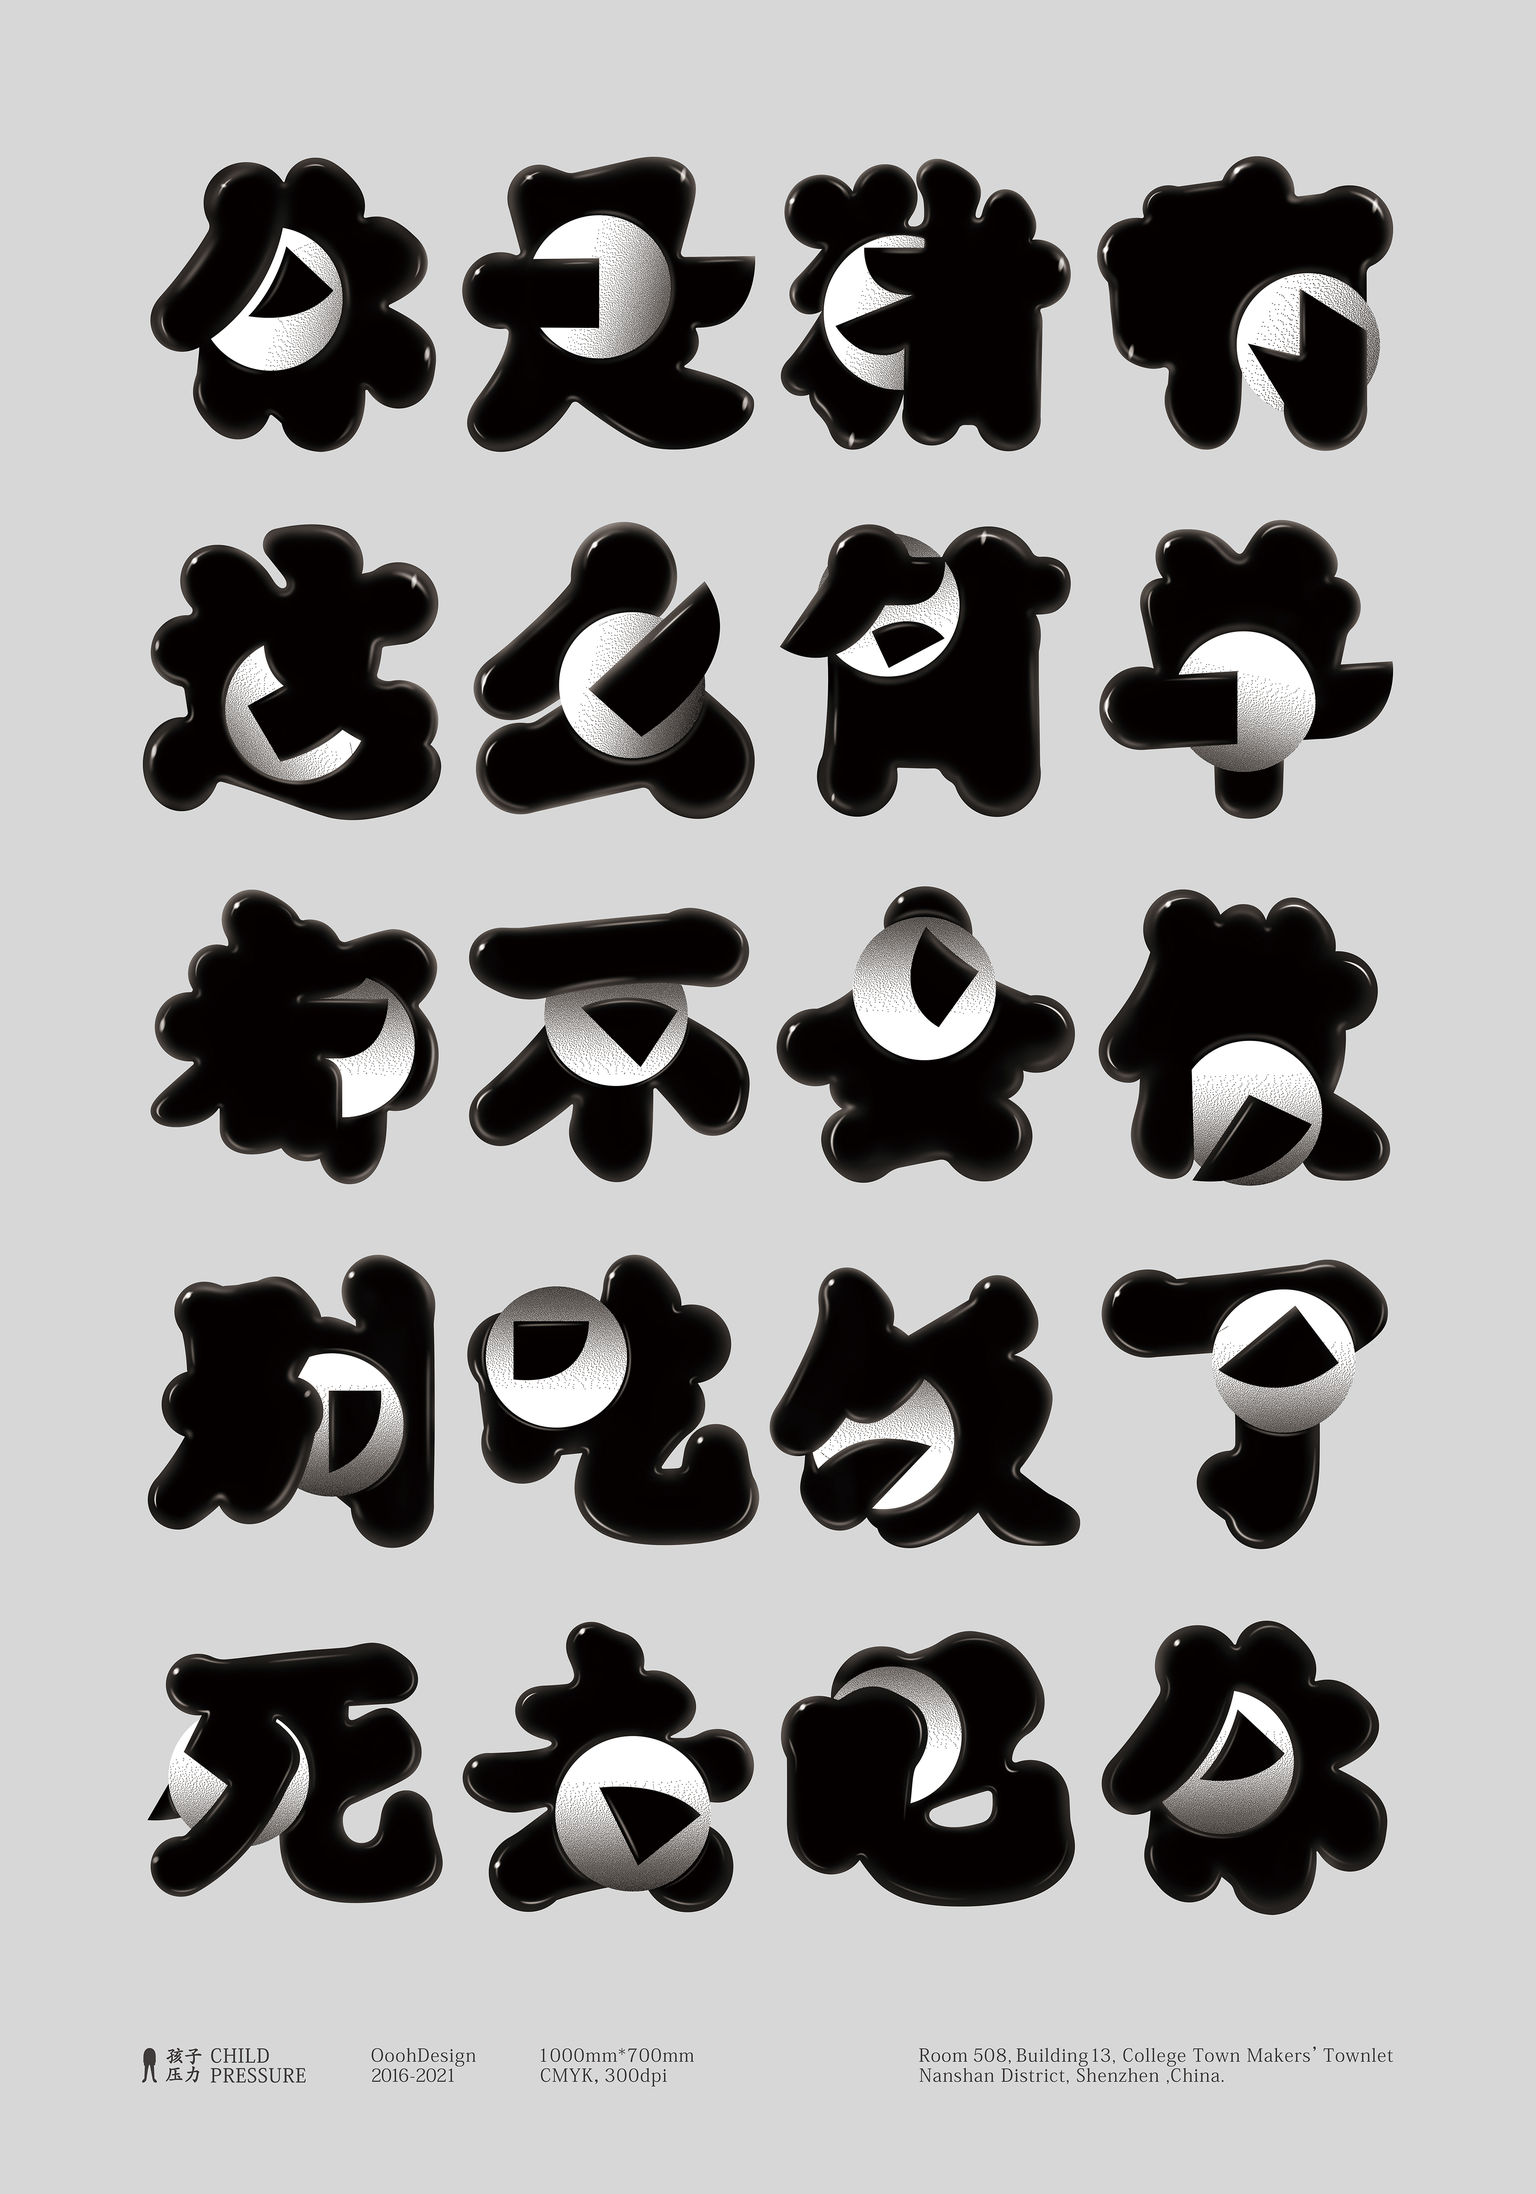 你是猪啊
这么简单
都不会做
别吃饭了
死去吧你
孩子 CHILD
压力 PRESSURE
OoohDesign
2016-2021
1000mm*700mm
CMYK, 300dpi
Room 508, Building 13, College Town Makers’ Townlet
Nanshan District, Shenzhen ,China.